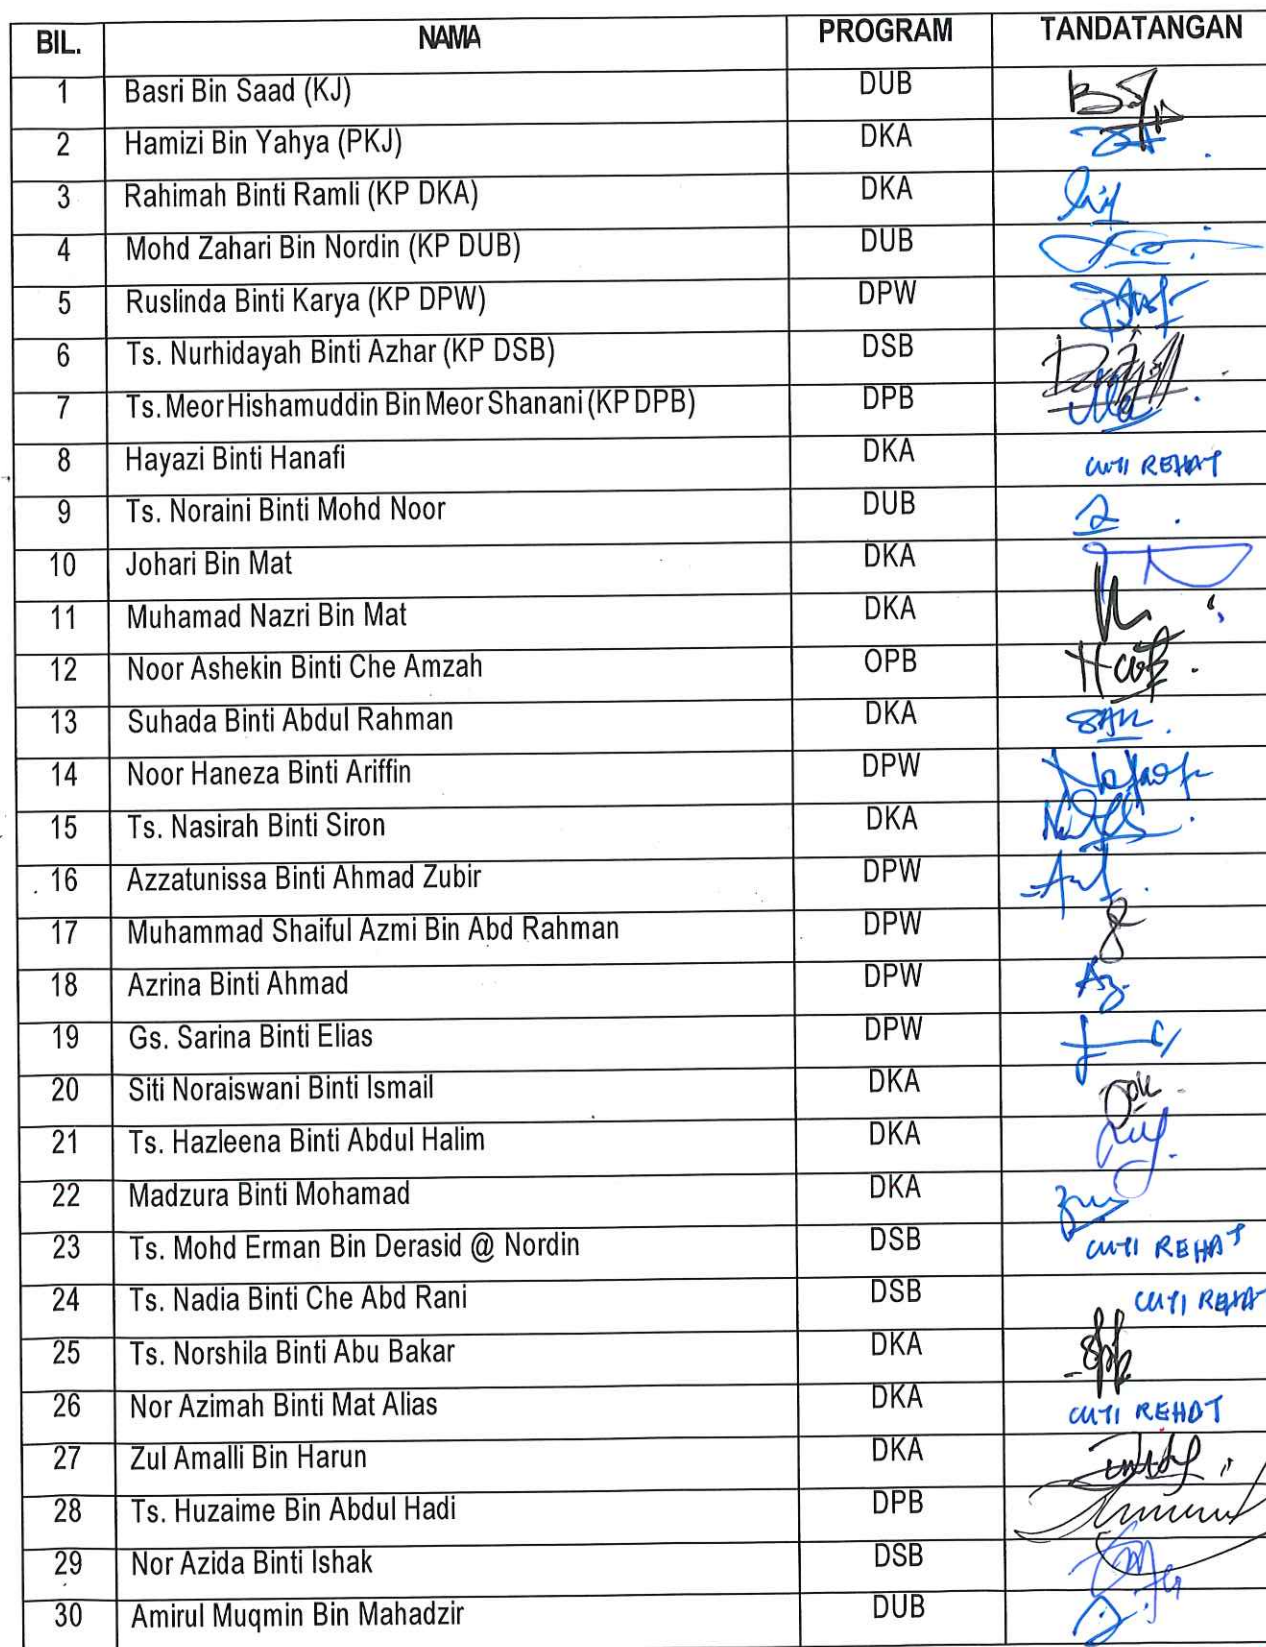 BIL. NAMA PROGRAM TANDATANGAN
1 Basri Bin Saad (KJ) DUB
2 Hamizi Bin Yahya (PKJ) DKA
3 Rahimah Binti Ramli (KP DKA) DKA
4 Mohd Zahari Bin Nordin (KP DUB) DUB
5 Ruslinda Binti Karya (KP DPW) DPW
6 Ts. Nurhidayah Binti Azhar (KP DSB) DSB
7 Ts. Meor Hishamuddin Bin Meor Shanani (KP DPB) DPB
8 Hayazi Binti Hanafi DKA CUTI REHAT
9 Ts. Noraini Binti Mohd Noor DUB
10 Johari Bin Mat DKA
11 Muhamad Nazri Bin Mat DKA
12 Noor Ashekin Binti Che Amzah OPB
13 Suhada Binti Abdul Rahman DKA
14 Noor Haneza Binti Ariffin DPW
15 Ts. Nasirah Binti Siron DKA
16 Azzatunissa Binti Ahmad Zubir DPW
17 Muhammad Shaiful Azmi Bin Abd Rahman DPW
18 Azrina Binti Ahmad DPW
19 Gs. Sarina Binti Elias DPW
20 Siti Noraiswani Binti Ismail DKA
21 Ts. Hazleena Binti Abdul Halim DKA
22 Madzura Binti Mohamad DKA
23 Ts. Mohd Erman Bin Derasid @ Nordin DSB CUTI REHAT
24 Ts. Nadia Binti Che Abd Rani DSB CUTI REHAT
25 Ts. Norshila Binti Abu Bakar DKA
26 Nor Azimah Binti Mat Alias DKA CUTI REHAT
27 Zul Amalli Bin Harun DKA
28 Ts. Huzaime Bin Abdul Hadi DPB
29 Nor Azida Binti Ishak DSB
30 Amirul Muqmin Bin Mahadzir DUB